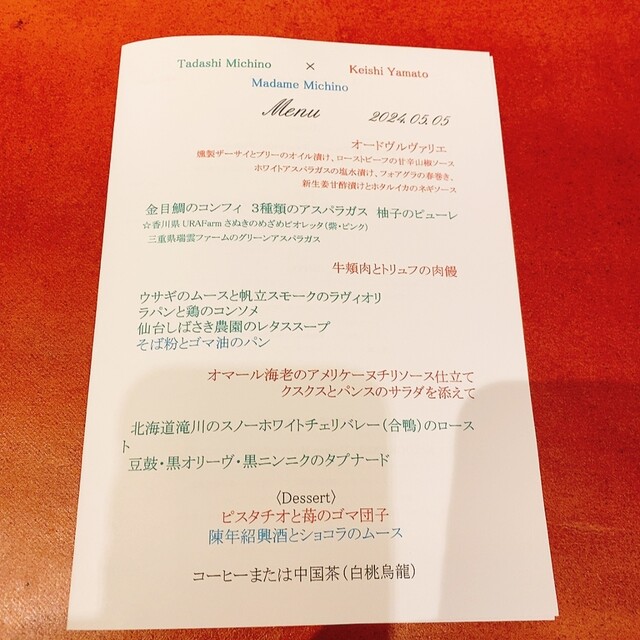 Tadashi Michino × Keishi Yamato
Madame Michino
Menu 2024.05.05
オードヴルヴァリエ
燻製ザーサイとブリーのオイル漬け、ローストビーフの甘辛山椒ソース
ホワイトアスパラガスの塩水漬け、フォアグラの春巻き、
新生姜甘酢漬けとホタルイカのネギソース
金目鯛のコンフィ 3種類のアスパラガス 柚子のピューレ
☆香川県 URAFarm さぬきのめざめビオレッタ（紫・ピンク）
三重県瑞雲ファームのグリーンアスパラガス
牛頬肉とトリュフの肉饅
ウサギのムースと帆立スモークのラヴィオリ
ラパンと鶏のコンソメ
仙台しばさき農園のレタススープ
そば粉とゴマ油のパン
オマール海老のアメリケーヌチリソース仕立て
クスクスとパンスのサラダを添えて
北海道滝川のスノーホワイトチェリバレー（合鴨）のロース
ト
豆鼓・黒オリーヴ・黒ニンニクのタプナード
〈Dessert〉
ピスタチオと苺のゴマ団子
陳年紹興酒とショコラのムース
コーヒーまたは中国茶（白桃烏龍）